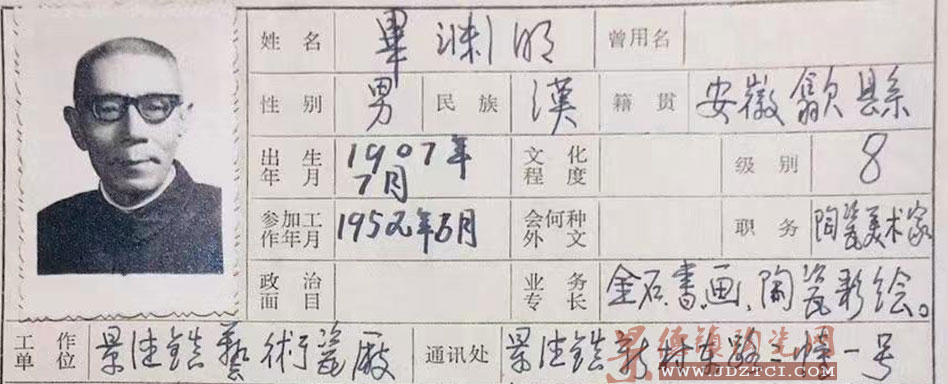 姓名 畢渊明 曾用名
性别 男 民族 漢 籍贯 安徽歙縣
出生年月 1907年7月 文化程度 级别 8
参加工作年月 1952年5月 会何种外文 职务 陶瓷美术家
政治面目 业务专长 金石、書、画、陶瓷彩绘。
工作单位 景德鎮藝術瓷廠 通讯处 景德鎮新村东路一幢一号
景德镇陶瓷网
WWW.JDZTCI.COM